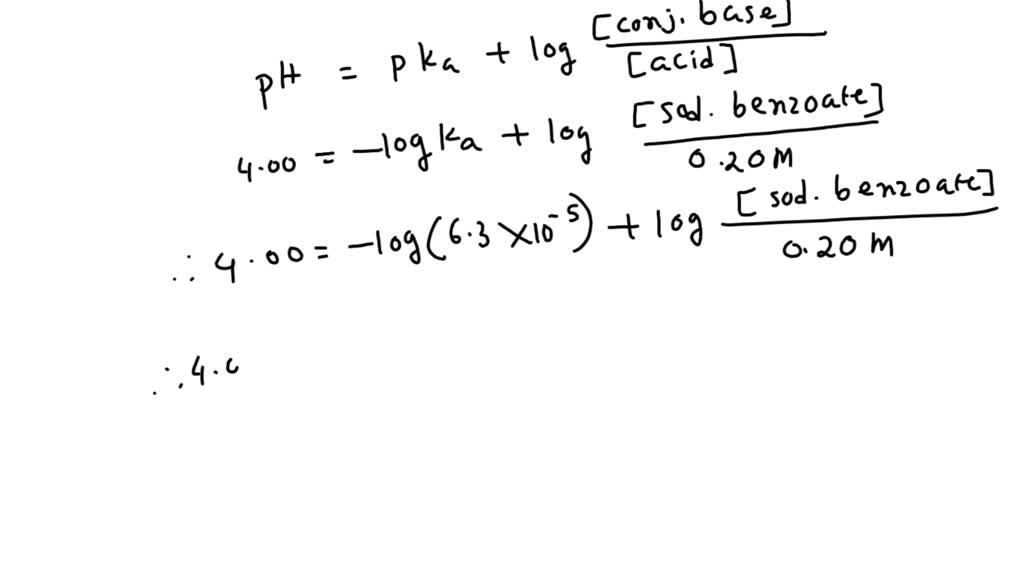 pH = pka + log [conj. base] / [acid]
4.00 = -log ka + log [sod. benzoate] / 0.20M
∴ 4.00 = -log(6.3 × 10^-5) + log [sod. benzoate] / 0.20 M
∴ 4.0